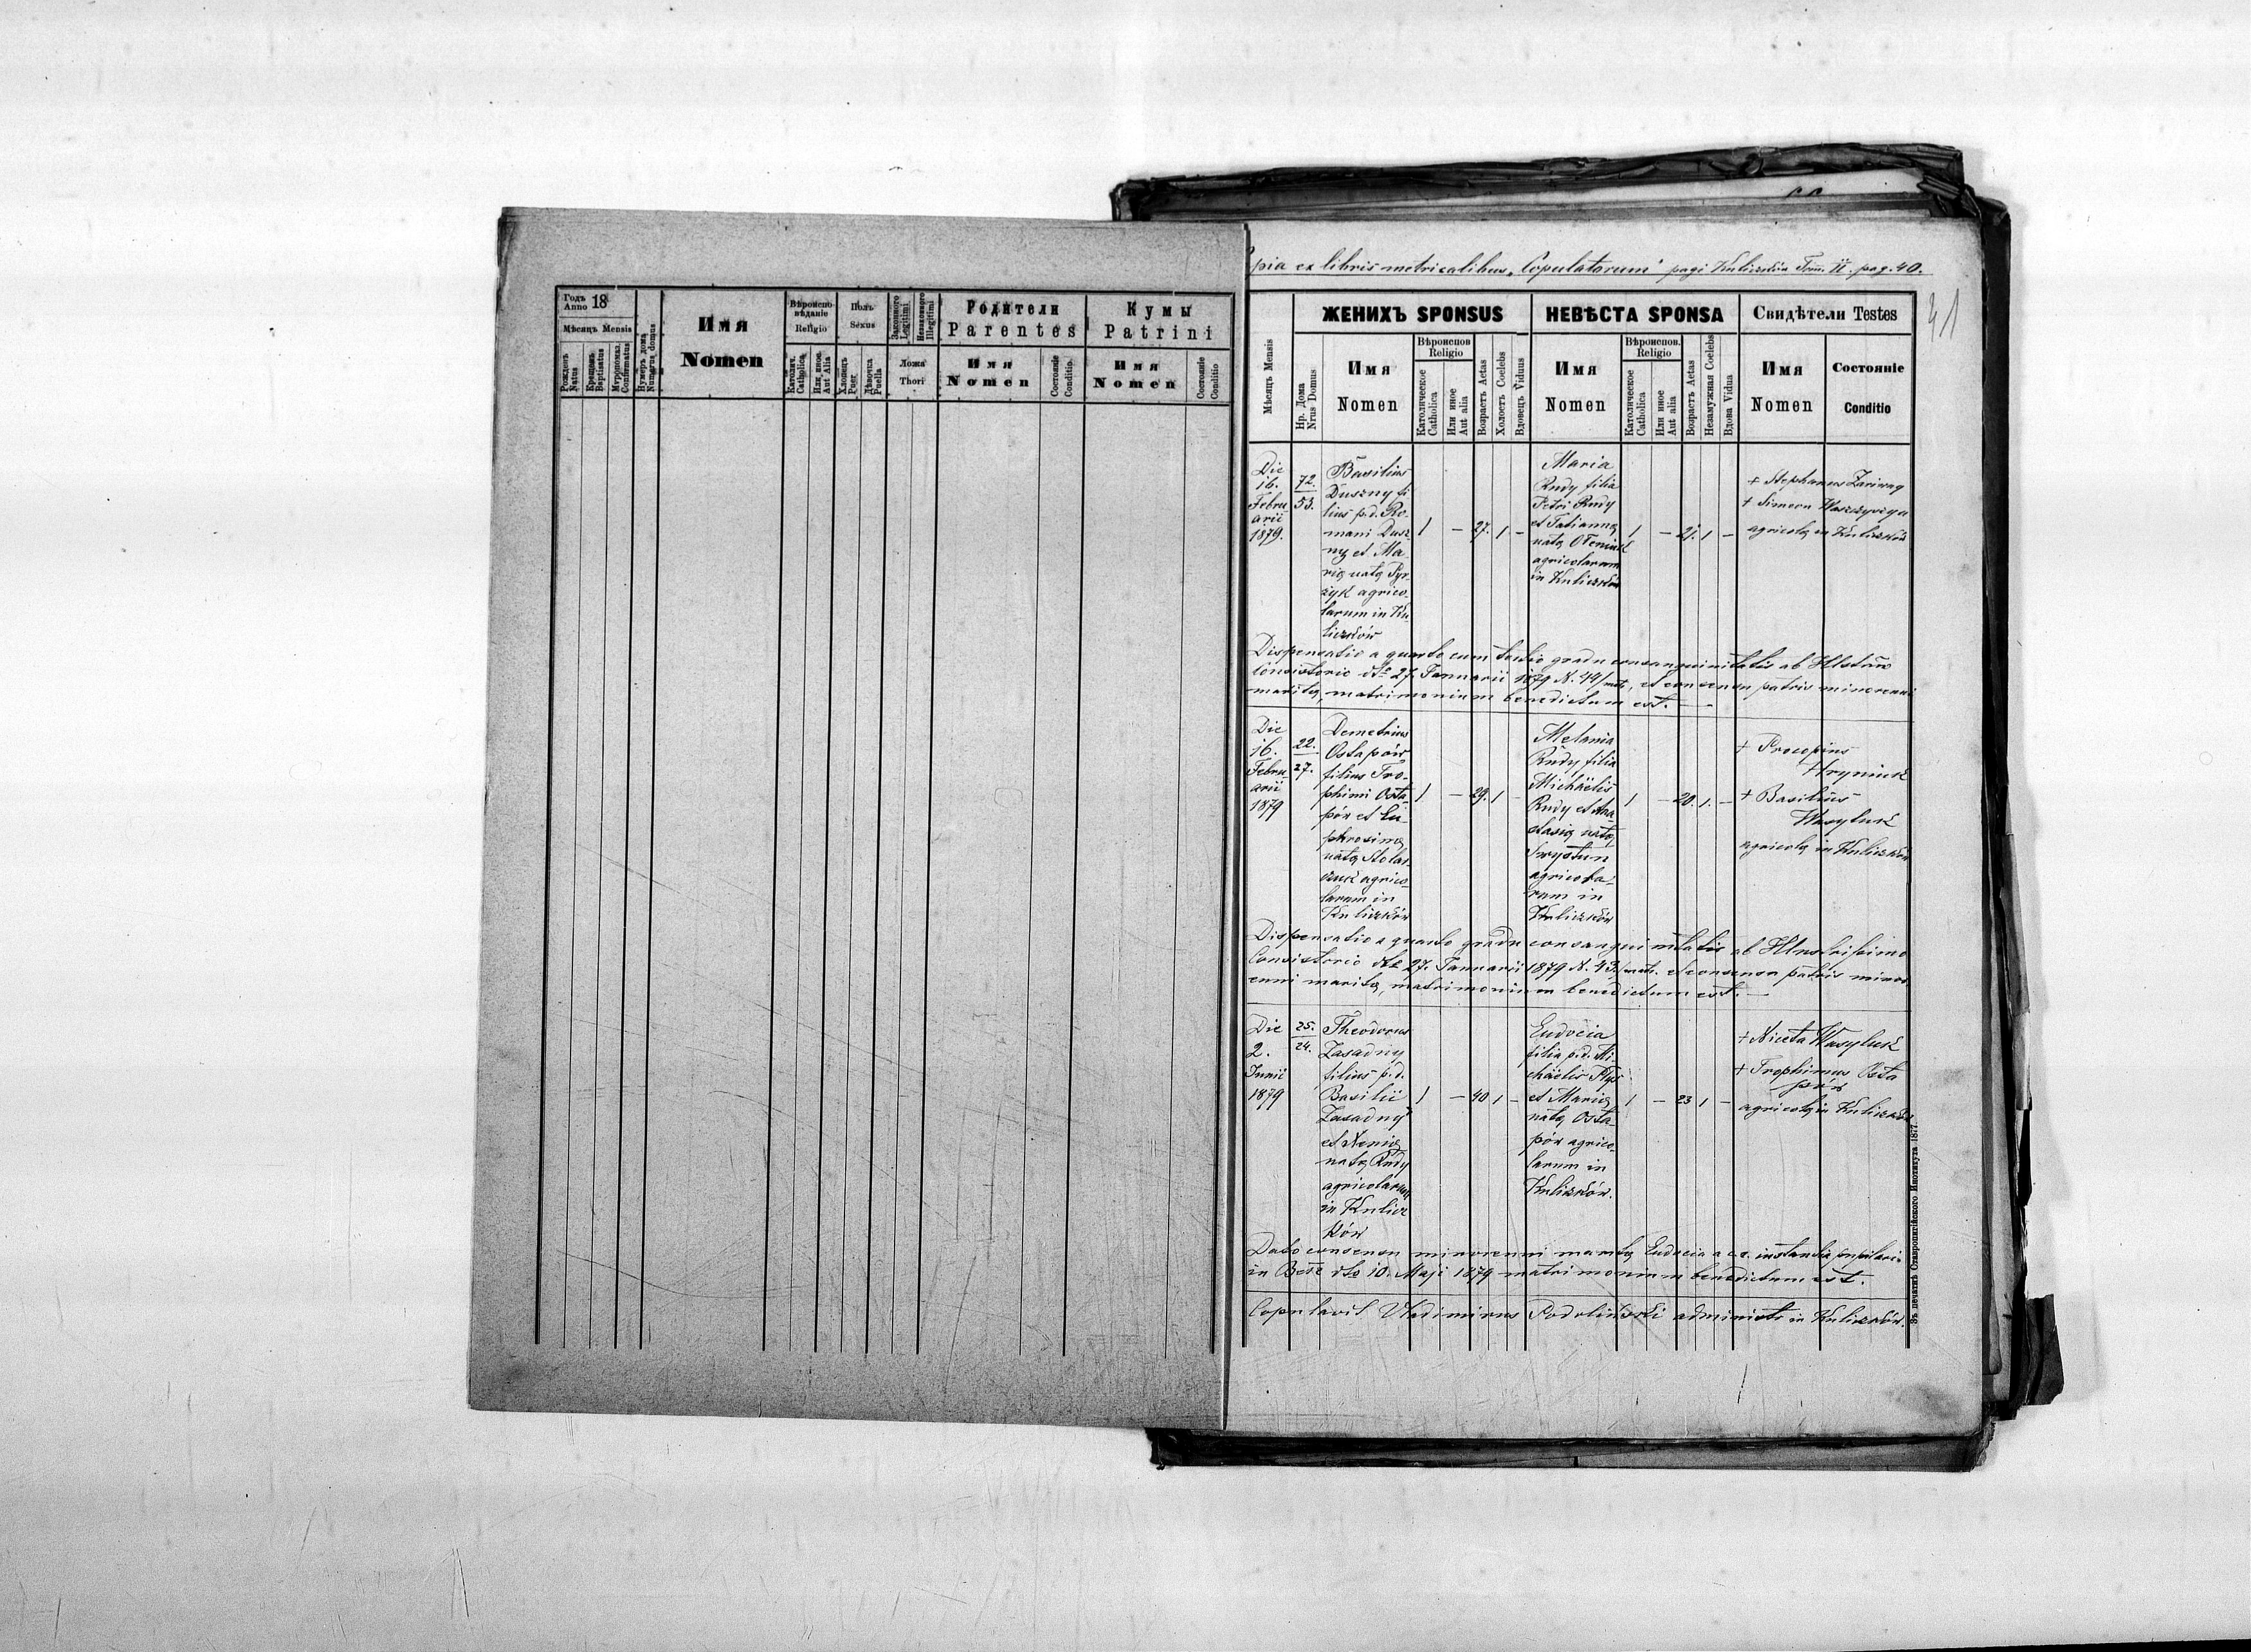 Годъ
Anno 18
Мѣсяцъ Mensis
Рожденъ
Natus
Крещенъ
Baptisatus
Муропомаз.
Confirmatus
Нумеръ дома
Numerus domus
Имя
Nomen
Вѣроиспо-
вѣданіе
Religio
Католич.
Catholica
Или иное.
Aut Alia
Полъ
Sexus
Хлопецъ
Puer
Дѣвочка
Puella
Законного
Legitimi
Незаконного
Illegitimi
Ложа
Thori
Родители
Parentes
Имя
Nomen
Состояніе
Conditio.
Кумы
Patrini
Имя
Nomen
Состояніе
Conditio
pia ex libris metricalibus „Copulatorum" pagi Kuliczków Tom. II. pag. 40.
41
Мѣсяцъ Mensis
ЖЕНИХЪ SPONSUS
Нр. Дома
Nrus Domus
Имя
Nomen
Вѣроиспов
Religio
Католическое
Catholica
Или иное
Aut alia
Возрастъ Aetas
Холостъ Coelebs
Вдовецъ Viduus
НЕВѢСТА SPONSA
Имя
Nomen
Вѣроиспов.
Religio
Католическое
Catholica
Или иное
Aut alia
Возрастъ Aetas
Незамужная Coelebs
Вдова Vidua
Свидѣтели Testes
Имя
Nomen
Состояніе
Conditio
Die
16.
Febru
arii
1879.
72.
53.
Basilius
Duszny fi
lius p.d. Ro-
mani Dusz-
ny et Ma
rię natę Pyr-
żyk agrico-
larum in Ku-
liczków
1 – 27. 1 –
Maria
Rudy filia
Petri Rudy
et Tatiannę
natę
agricolarum
in Kuliczków
1 – 21. 1 –
+ Stephanus
+ Simeon
agricolę in Kuliczków
Dispensatio a quarto cum tertio gradu consanguinitatis ab Illstrmo
Consistorio dto 27. Januarii 1879 N. 44/mat., et consensu patris minorenni
maritę, matrimonium benedictum est. —
Die
16.
Febru
arii
1879
22.
27.
Demetrius
Ostapów
filius Tro-
phimi Osta-
pów et Eu-
phrosinę
natę Stolar
czuk agrico-
larum in
Kuliczków
1 – 29. 1 –
Melania
Rudy filia
Michäelis
Rudy et Ana-
stasię natę
Trystun
agricola-
rum in
Kuliczków
1 – 20. 1. –
+ Procopius
Hryniuk
+ Basilius
Wasyluk
agricolę in Kuliczków
Dispensatio a quarto gradu consanguinitatis ab Illustrißimo
Consistorio dto 27. Januarii 1879 N. 43./mat. et consensu patris minor
enni maritę, matrimonium benedictum est. —
Die
2.
Junii
1879
25.
24.
Theodorus
Zasadny
filius p.d.
Basilii
Zasadny
et Xenię
natę Rudy
agricolarum
in Kulicz
ków
1 – 40 1 –
Eudocia
filia p.d. Mi-
chäelis
et Marię
natę Osta-
pów agrico-
larum in
Kuliczków.
1 – 23 1 –
+ Niceta Wasyluk
+ Trophimus Osta
pów
agricolę in Kuliczków
Dato consensu minorenni maritę Eudocia a c.r. instantia pupilari
in Bełz dto 10. Maji 1879 matrimonium benedictum est.
Copulavit Vladimirus Podoliński administr in Kuliczków.
Зъ печатнѣ Ставропигійского Института 1877.